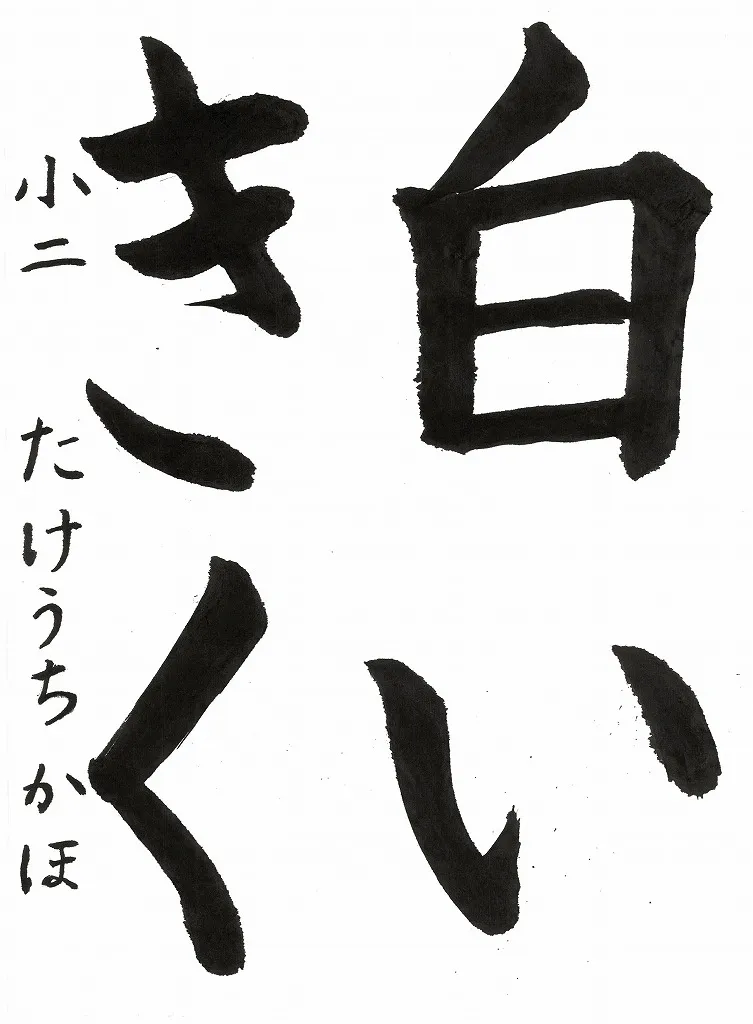 白い
きく
小二 たけうち かほ